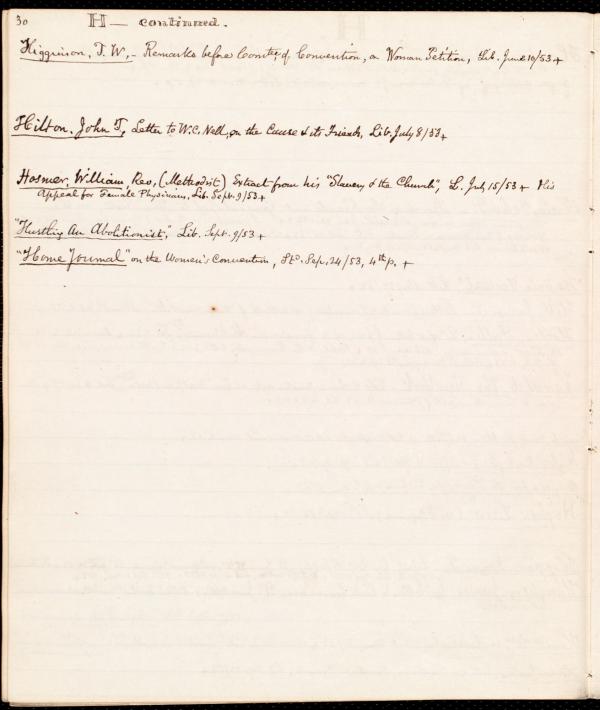 30 H — continued.
Higginson, T. W, - Remarks before Comtee of Convention, on Woman Petition, Lib. June 10/53 +
Hilton, John T, Letter to W.C. Nell, on the Cause & its Friends, Lib. July 8/53 +
Hosmer, William, Rev, (Methodist) Extract from his "Slavery & the Church", L. July 15/53 + His
Appeal for Female Physicians, Lib. Sept. 9/53 +
"Hustling An Abolitionist," Lib. Sept. 9/53 +
"Home Journal" on the Women's Convention, Std. Sep. 24/53, 4th p. +